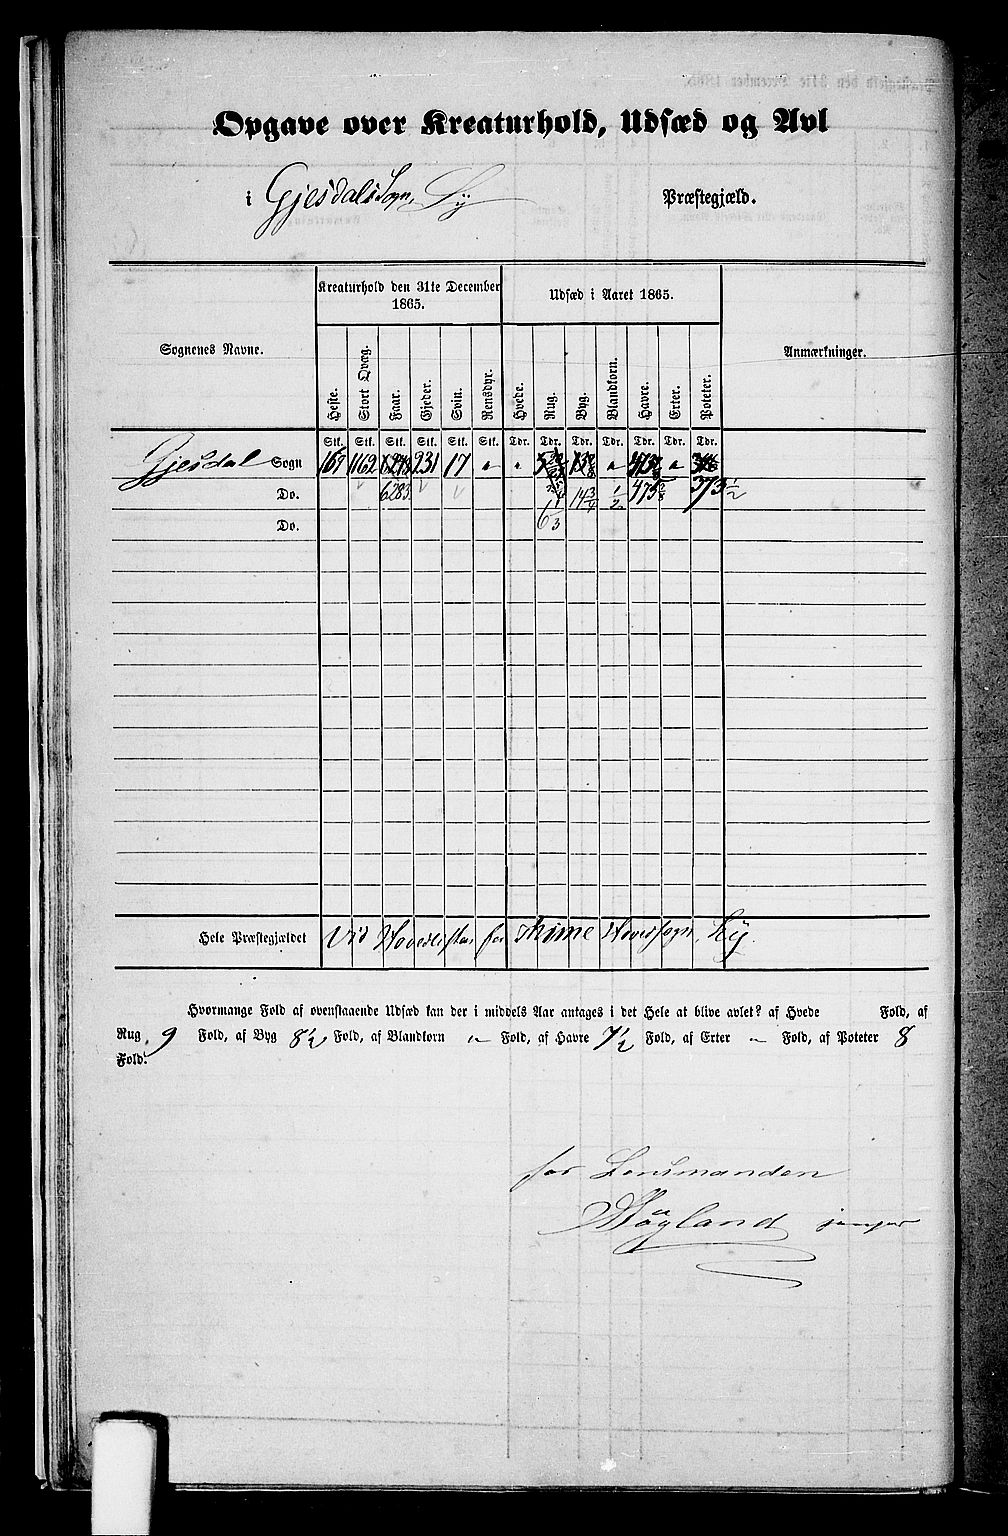 Opgave over Kreaturhold, Udsæd og Avl
i Gjesdals Sogn, Ly Præstegjæld.
Sognenes Navne. Kreaturhold den 31te December 1865. Udsæd i Aaret 1865. Anmærkninger.
Heste. Stort Qvæg. Faar. Gjeder. Svin. Rensdyr. Hvede. Rug. Byg. Blandkorn. Havre. Erter. Poteter.
Stk. Stk. Stk. Stk. Stk. Stk. Tdr. Tdr. Tdr. Tdr. Tdr. Tdr. Tdr.
Gjesdal Sogn 169 1162 231 17 " " " "
Do. 6283 14 3/4 1/2 475 373 1/2
Do. 6 1/3
Hele Præstegjældet Vid Hovedlisten for Thime Hovedsogn, Ly
Hvormange Fold af ovenstaaende Udsæd kan der i middels Aar antages i det Hele at blive avlet? af Hvede Fold, af
Rug 9 Fold, af Byg 8 1/2 Fold, af Blandkorn " Fold, af Havre 7 1/2 Fold, af Erter " Fold, af Poteter 8
Fold.
for Lensmanden
Høyland junior